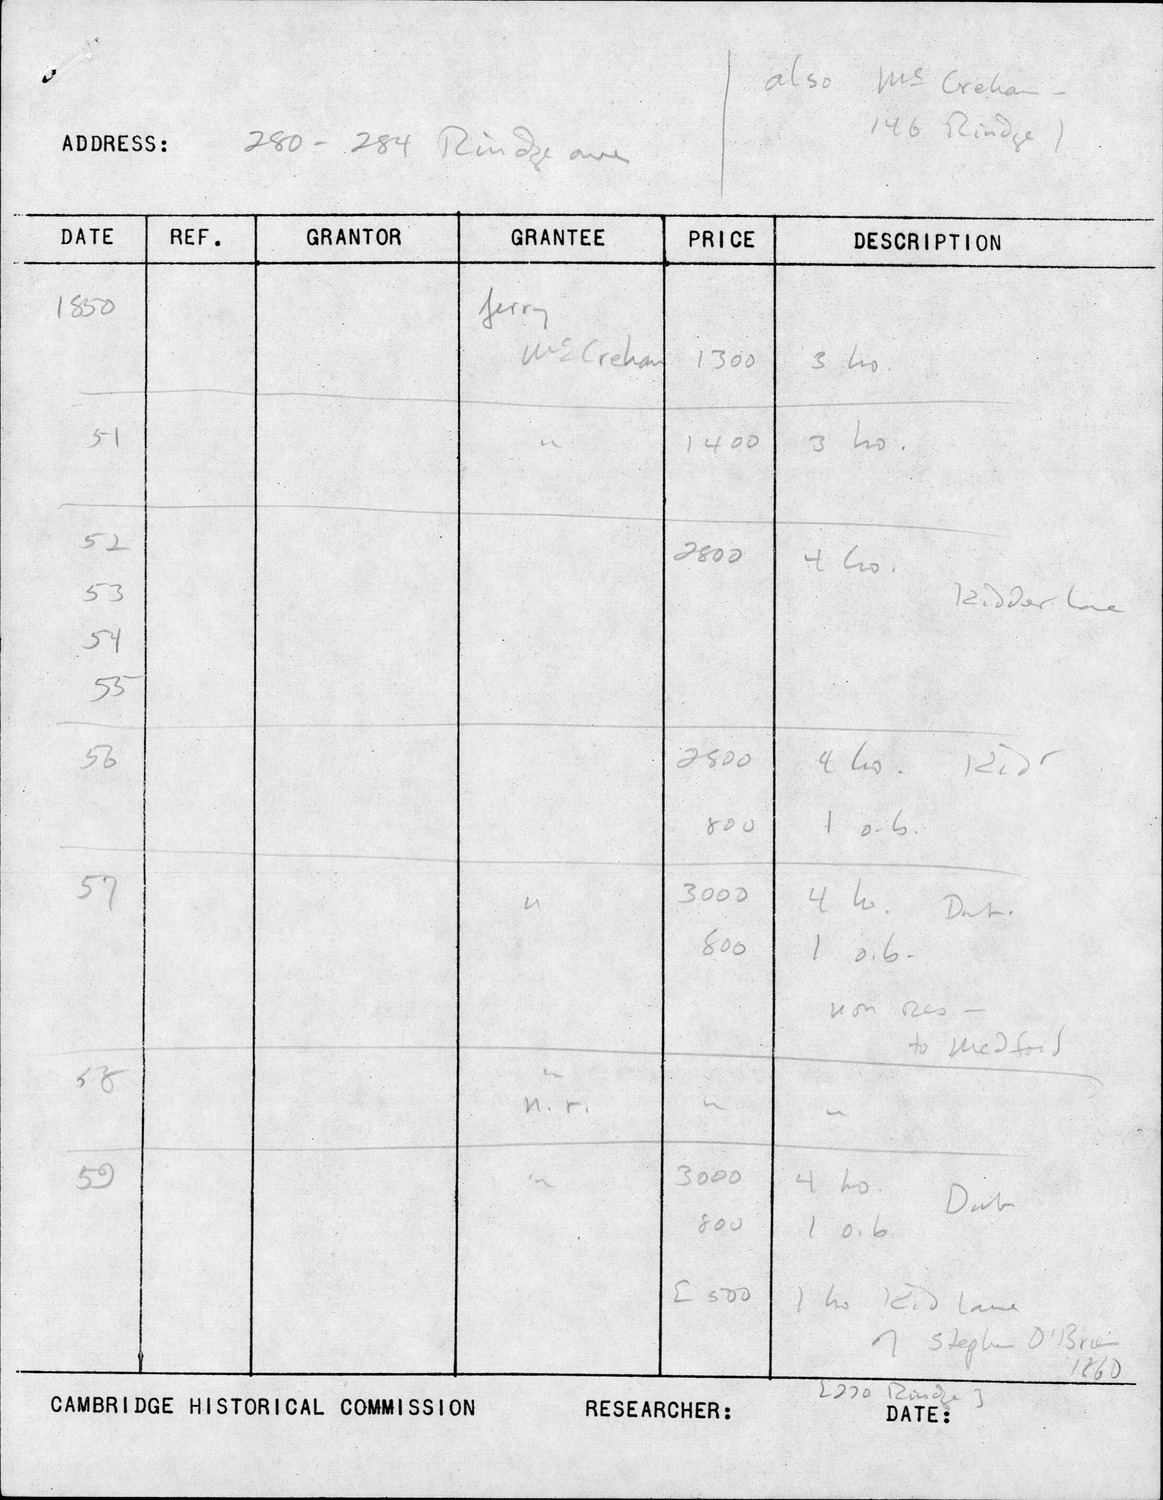 also Mc Crehan -
146 Rindge
ADDRESS: 280 - 284 Rindge ave
DATE REF. GRANTOR GRANTEE PRICE DESCRIPTION
1850 Jerry
McCrehan 1300 3 ho.
51 " 1400 3 ho.
52 2800 4 ho.
53 Kidder Lane
54
55
56 2800 4 ho. Kidr
800 1 o.b.
57 " 3000 4 ho. Dub.
800 1 o.b.
non res -
to Medford
58 "
n.r. " "
59 " 3000 4 ho. Dub
800 1 o.b
[ 500 1 ho Kid Lane
Stephen O'Brien
1860
[270 Rindge]
CAMBRIDGE HISTORICAL COMMISSION RESEARCHER: DATE: